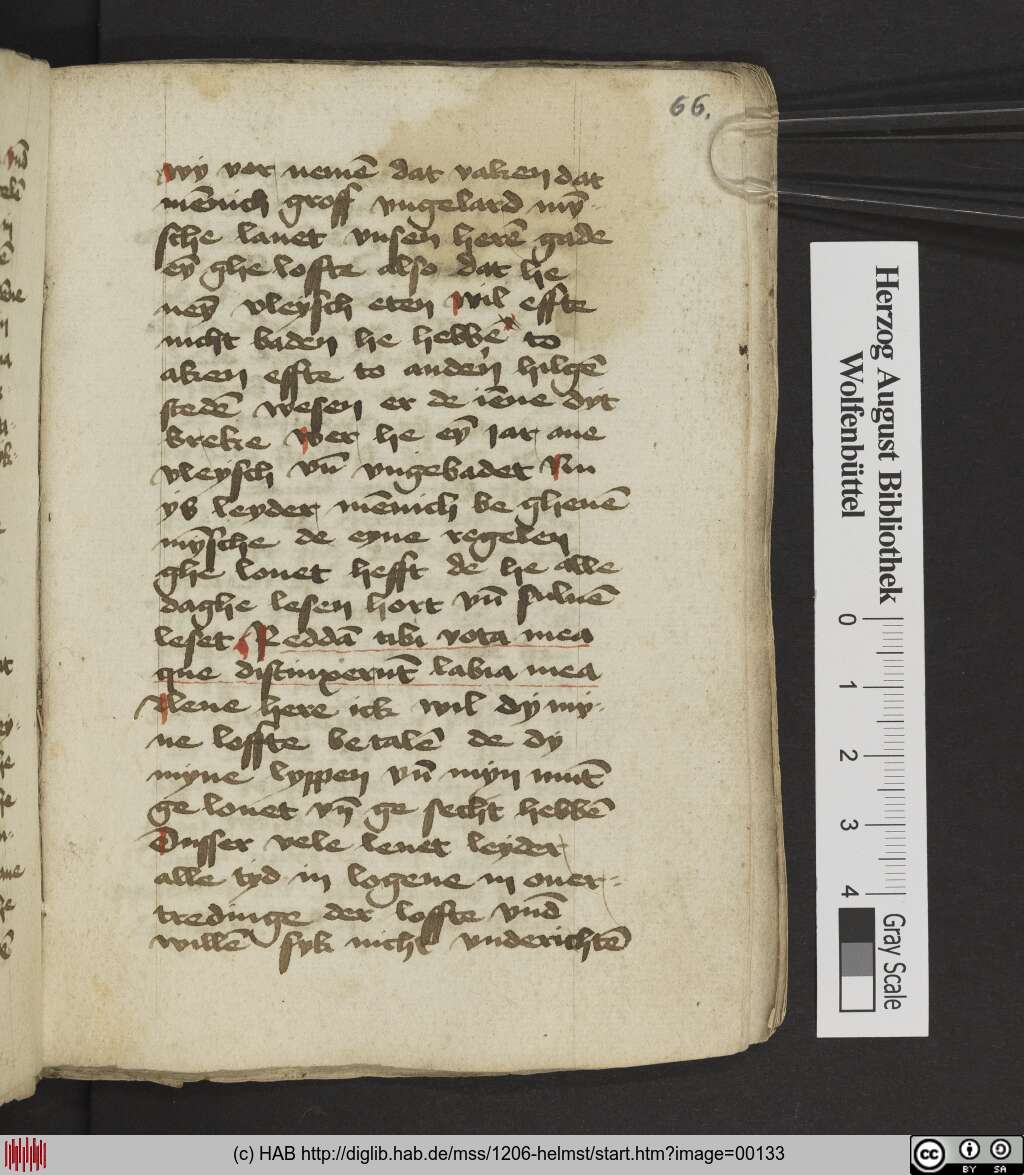 66.
wÿ vor nemē dat vaken dat
mēnich groff vngelard mÿ-
sche lauet vnsen herē gade
eÿ ghe loffte also dat he
neÿ vleÿsch eten wil effte
nicht baden he hebbe to
aken effte to anden hilgē
stedē wesen er de iēne dÿt
breke wer he eÿ jar ane
vleÿsch vn̄ vngebadet Nu
ÿs leÿder mēnich be gheuē
mÿsche de eyne regelen
ghe louet hefft de he alle
daghe lesen hort vn̄ suluē
leset Reddā tibi vota mea
que distinxerūt labia mea
Leue here ick wil dÿ mÿ-
ne loffte be talē de dÿ
mÿne lÿppen vn̄ mÿn mūt
ge louet vn̄ ge secht hebbē
Dusser vele leuet leÿder
alle tÿd in logene in ouer-
tredinge der loffte vnd
willē sÿk nicht vnderichtē
Herzog August Bibliothek
Wolfenbüttel
0 1 2 3 4
Gray Scale
(c) HAB http://diglib.hab.de/mss/1206-helmst/start.htm?image=00133
cc BY SA